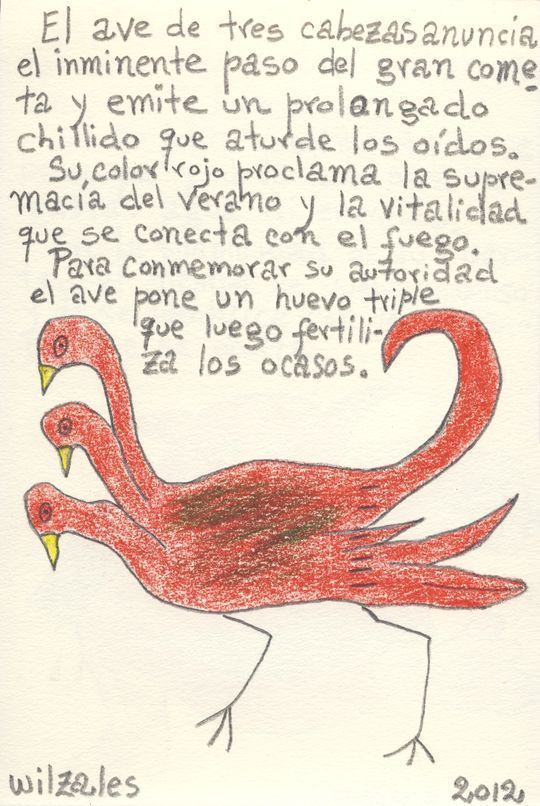 El ave de tres cabezas anuncia
el inminente paso del gran come-
ta y emite un prolongado
chillido que aturde los oídos.
Su color rojo proclama la supre-
macía del verano y la vitalidad
que se conecta con el fuego.
Para conmemorar su autoridad
el ave pone un huevo triple
que luego fertili-
za los ocasos.
wilzales
2012